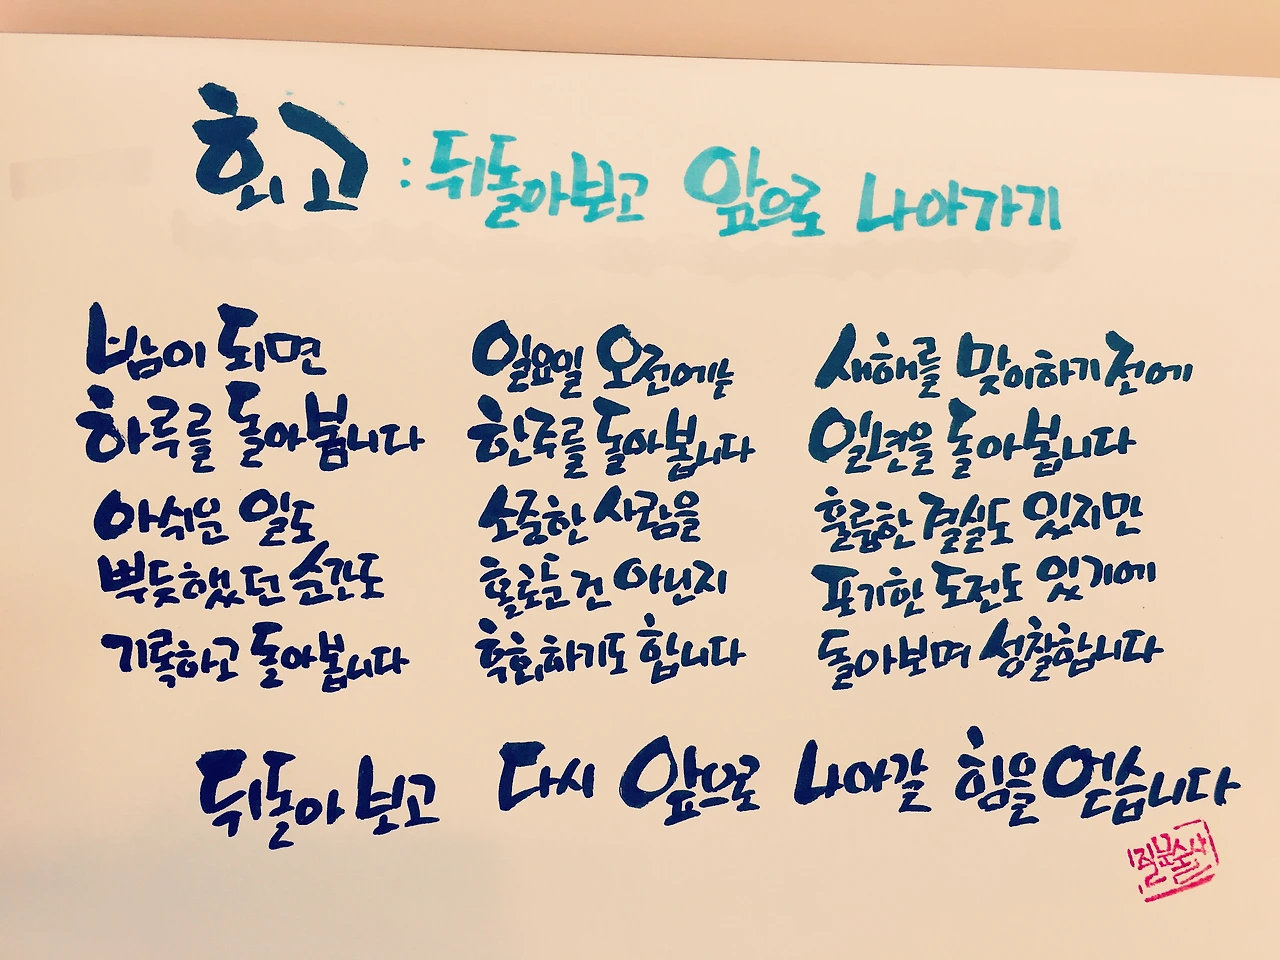 회고 : 뒤돌아보고 앞으로 나아가기
밤이 되면
하루를 돌아봅니다
아쉬운 일도
뿌듯했던 순간도
기록하고 돌아봅니다
일요일 오전에는
한주를 돌아봅니다
소중한 사람을
홀로둔건 아닌지
후회하기도 합니다
새해를 맞이하기 전에
일년을 돌아봅니다
훌륭한 결실도 있지만
포기한 도전도 있기에
돌아보며 성찰합니다
뒤돌아 보고 다시 앞으로 나아갈 힘을 얻습니다
질문술사